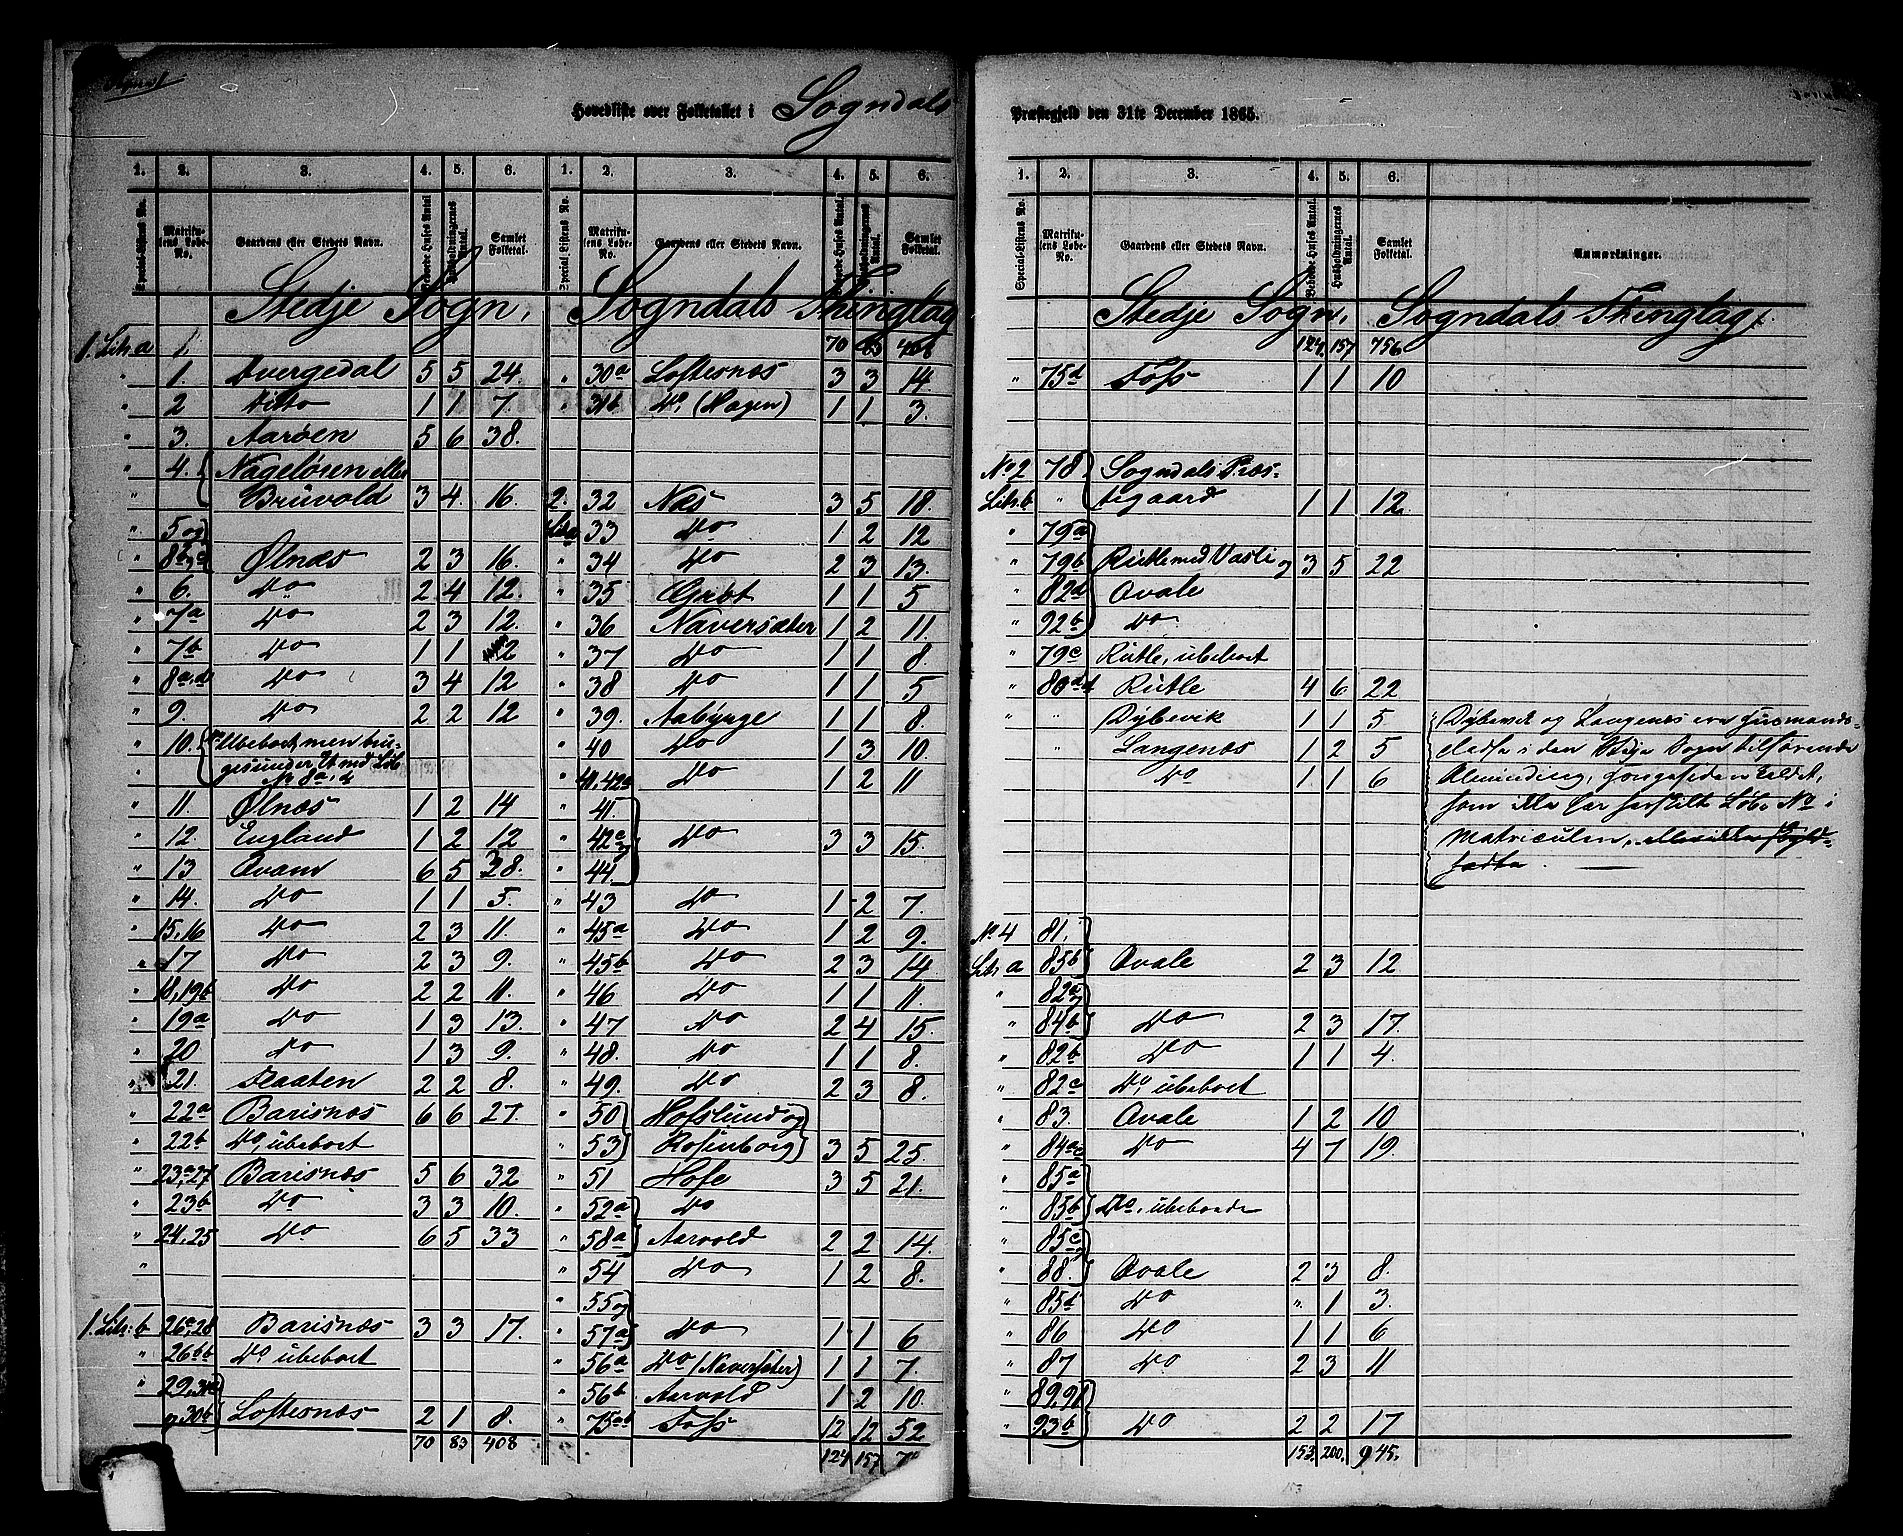 Hovedliste over Folketallet i Sogndals
1. 2. 3. 4. 5. 6. 1. 2. 3. 4. 5. 6.
Special-Listens No. Matrikulens Løbe-No. Gaardens eller Stedets Navn. Beboede Huses Antal. Husholdningernes Antal. Samlet Folketal. Special Listens No. Matrikulens Løbe-No. Gaardens eller Stedets Navn. Beboede Huses Antal. Husholdningernes Antal. Samlet Folketal.
Stedje Sogn, Sogndals Thinglag
1. Litr. a 1.
" 1. Dvergedal 5 5 24.
" 2 Ditto 1 1 7.
" 3. Aarøen 5 6 38.
" 4. Nageløren eller
" Brüvold 3 4. 16.
" 5 og
" 8b,c Ølnæs 2 3 16.
" 6. Do 2 4 12.
" 7a Do 2 3 12.
" 7b Do 1 1 2
" 8a,d Do 3 4 12
" 9. Do 2 2 12
" 10. Ubeboet, men bru-
ges under Et med Løb
No 8a,d
" 11. Ølnæs 1 2 14
" 12. England 1 2 12
" 13 Qvam 6 5 38.
" 14. Do 1 1 5.
" 15,16 Do 2 3 11.
" 17 Do 2 3 9.
" 18,19b Do 2 2 11.
" 19a Do 1 3 13.
" 20 Do 1 3 9.
" 21. Flaaten 2 2 8.
" 22a Barisnæs 6 6 27.
" 22b Do, übeboet
" 23a,27 Barisnæs 5 6 32
" 23b Do 3 3 10.
" 24,25 Do 6 5 33
"
1. Litr: b 26a,28 Barisnæs 3 3 17.
" 26b Do übeboet
" 29,31a
" og 30b Loftesnæs 2 1 8.
70 83 408
70 83 408
" 30a Loftesnæs 3 3 14.
" 31b Do, (Hagen) 1 1 3.
2. 32 Næs 3 5 18.
Litr a 33 Do 1 2 12
" 34 Do 2 3 13.
" 35 Gribt 1 1 5
" 36 Naversæter 1 2 11.
" 37 Do 1 1 8.
" 38 Do 1 1 5
" 39. Aabünge 1 1 8.
" 40 Do 1 3 10.
" 41,42a Do 1 2 11
" 41.
" 42c og Do 3 3 15.
" 44
" 43 Do 1 2 7.
" 45a Do 1 2 9.
" 45b Do 2 3 14
" 46 Do 1 1 11.
" 47 Do 2 4 15.
" 48. Do 1 1 8.
" 49. Do 2 3 8.
" 50 Hofslund og
" 53 Rosenborg 3 5 25.
" 51 Hofe 3 5 21.
" 52a Do
" 58a Aarvold 2 2 14.
" 54 Do 1 2 8.
" 55 og
" 57a Do 1 1 6
" 56a Do (Naversæter) 1 1 7.
" 56b Aarvold 1 2 10.
" 75ab Foss 12 12 52
124 157
Præstegjeld den 31te December 1865.
1. 2. 3. 4. 5. 6.
Special-Listens No. Matrikulens Løbe-No. Gaardens eller Stedets Navn. Beboede Huses Antal. Husholdningernes Antal. Samlet Folketal. Anmærkninger.
Stedje Sogn, Sogndals Thinglag.
124. 157 756
" 75d Foss 1 1 10
No 2 78 Sogndals Præs-
Litr. b " tegaard 1 1 12.
" 79a
" 79b Rütle med Vasli og 3 5 22
" 82d Qvale
" 92b Do
" 79c Rütle, übeboet
" 80 Rütle 4 6 22
" " Dybevik 1 1 5 Dybevik og Langenæs ere Huusmands-
" Langenæs 1 2 5 pladse i den Stedje Sogn tilhørende
Do 1 1 6 Alminding,
som ikke har særskilt Løbe No i
Matriculen,
No 4 81.
Litr a 85b Qvale 2 3 12
" 82a og
" 84b Do 2 3 17.
" 82b Do 1 1 4.
" 82c Do, übeboet
" 83. Qvale 1 2 10
" 84ac Do 4 7 19.
" 85a
" 85b Do, übeboede
" 85c og
" 88. Qvale 2 3 8.
" 85d Do " 1 3.
" 86 Do 1 1 6
" 87 Do 2 3 11
" 89,91
" 93b Do 2 2 17
153. 200. 945.